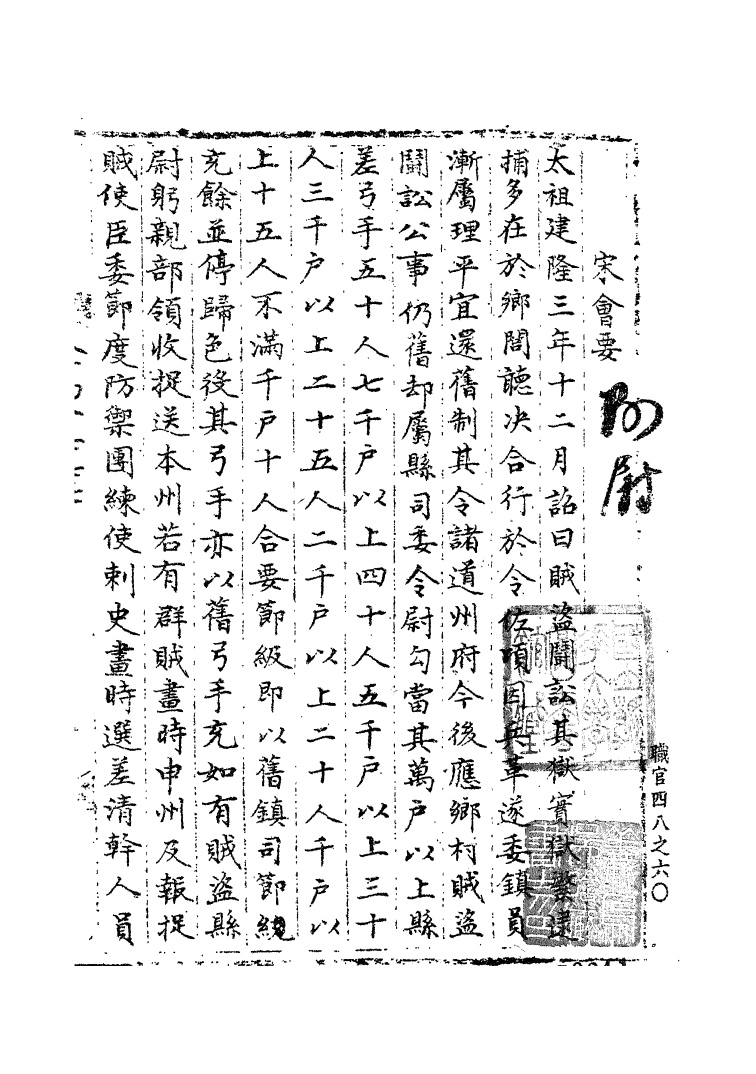 宋會要
尉
太祖建隆三年十二月詔曰賊盜鬭訟其獄實獄繫逮
捕多在於鄉閭聽決合行於令佐頃因兵革遂委鎮員
漸屬理平宜還舊制其令諸道州府今後應鄉村賊盜
鬭訟公事仍舊却屬縣司委令尉勾當其萬戶以上縣
差弓手五十人七千戶以上四十人五千戶以上三十
人三千戶以上二十五人二千戶以上二十人千戶以
上十五人不滿千戶十人合要節級即以舊鎮司節級
充餘並停歸色役其弓手亦以舊弓手充如有賊盜縣
尉躬親部領收捉送本州若有群賊畫時申州及報捉
賊使臣委節度防禦團練使刺史畫時選差清幹人員
職官四八之六〇